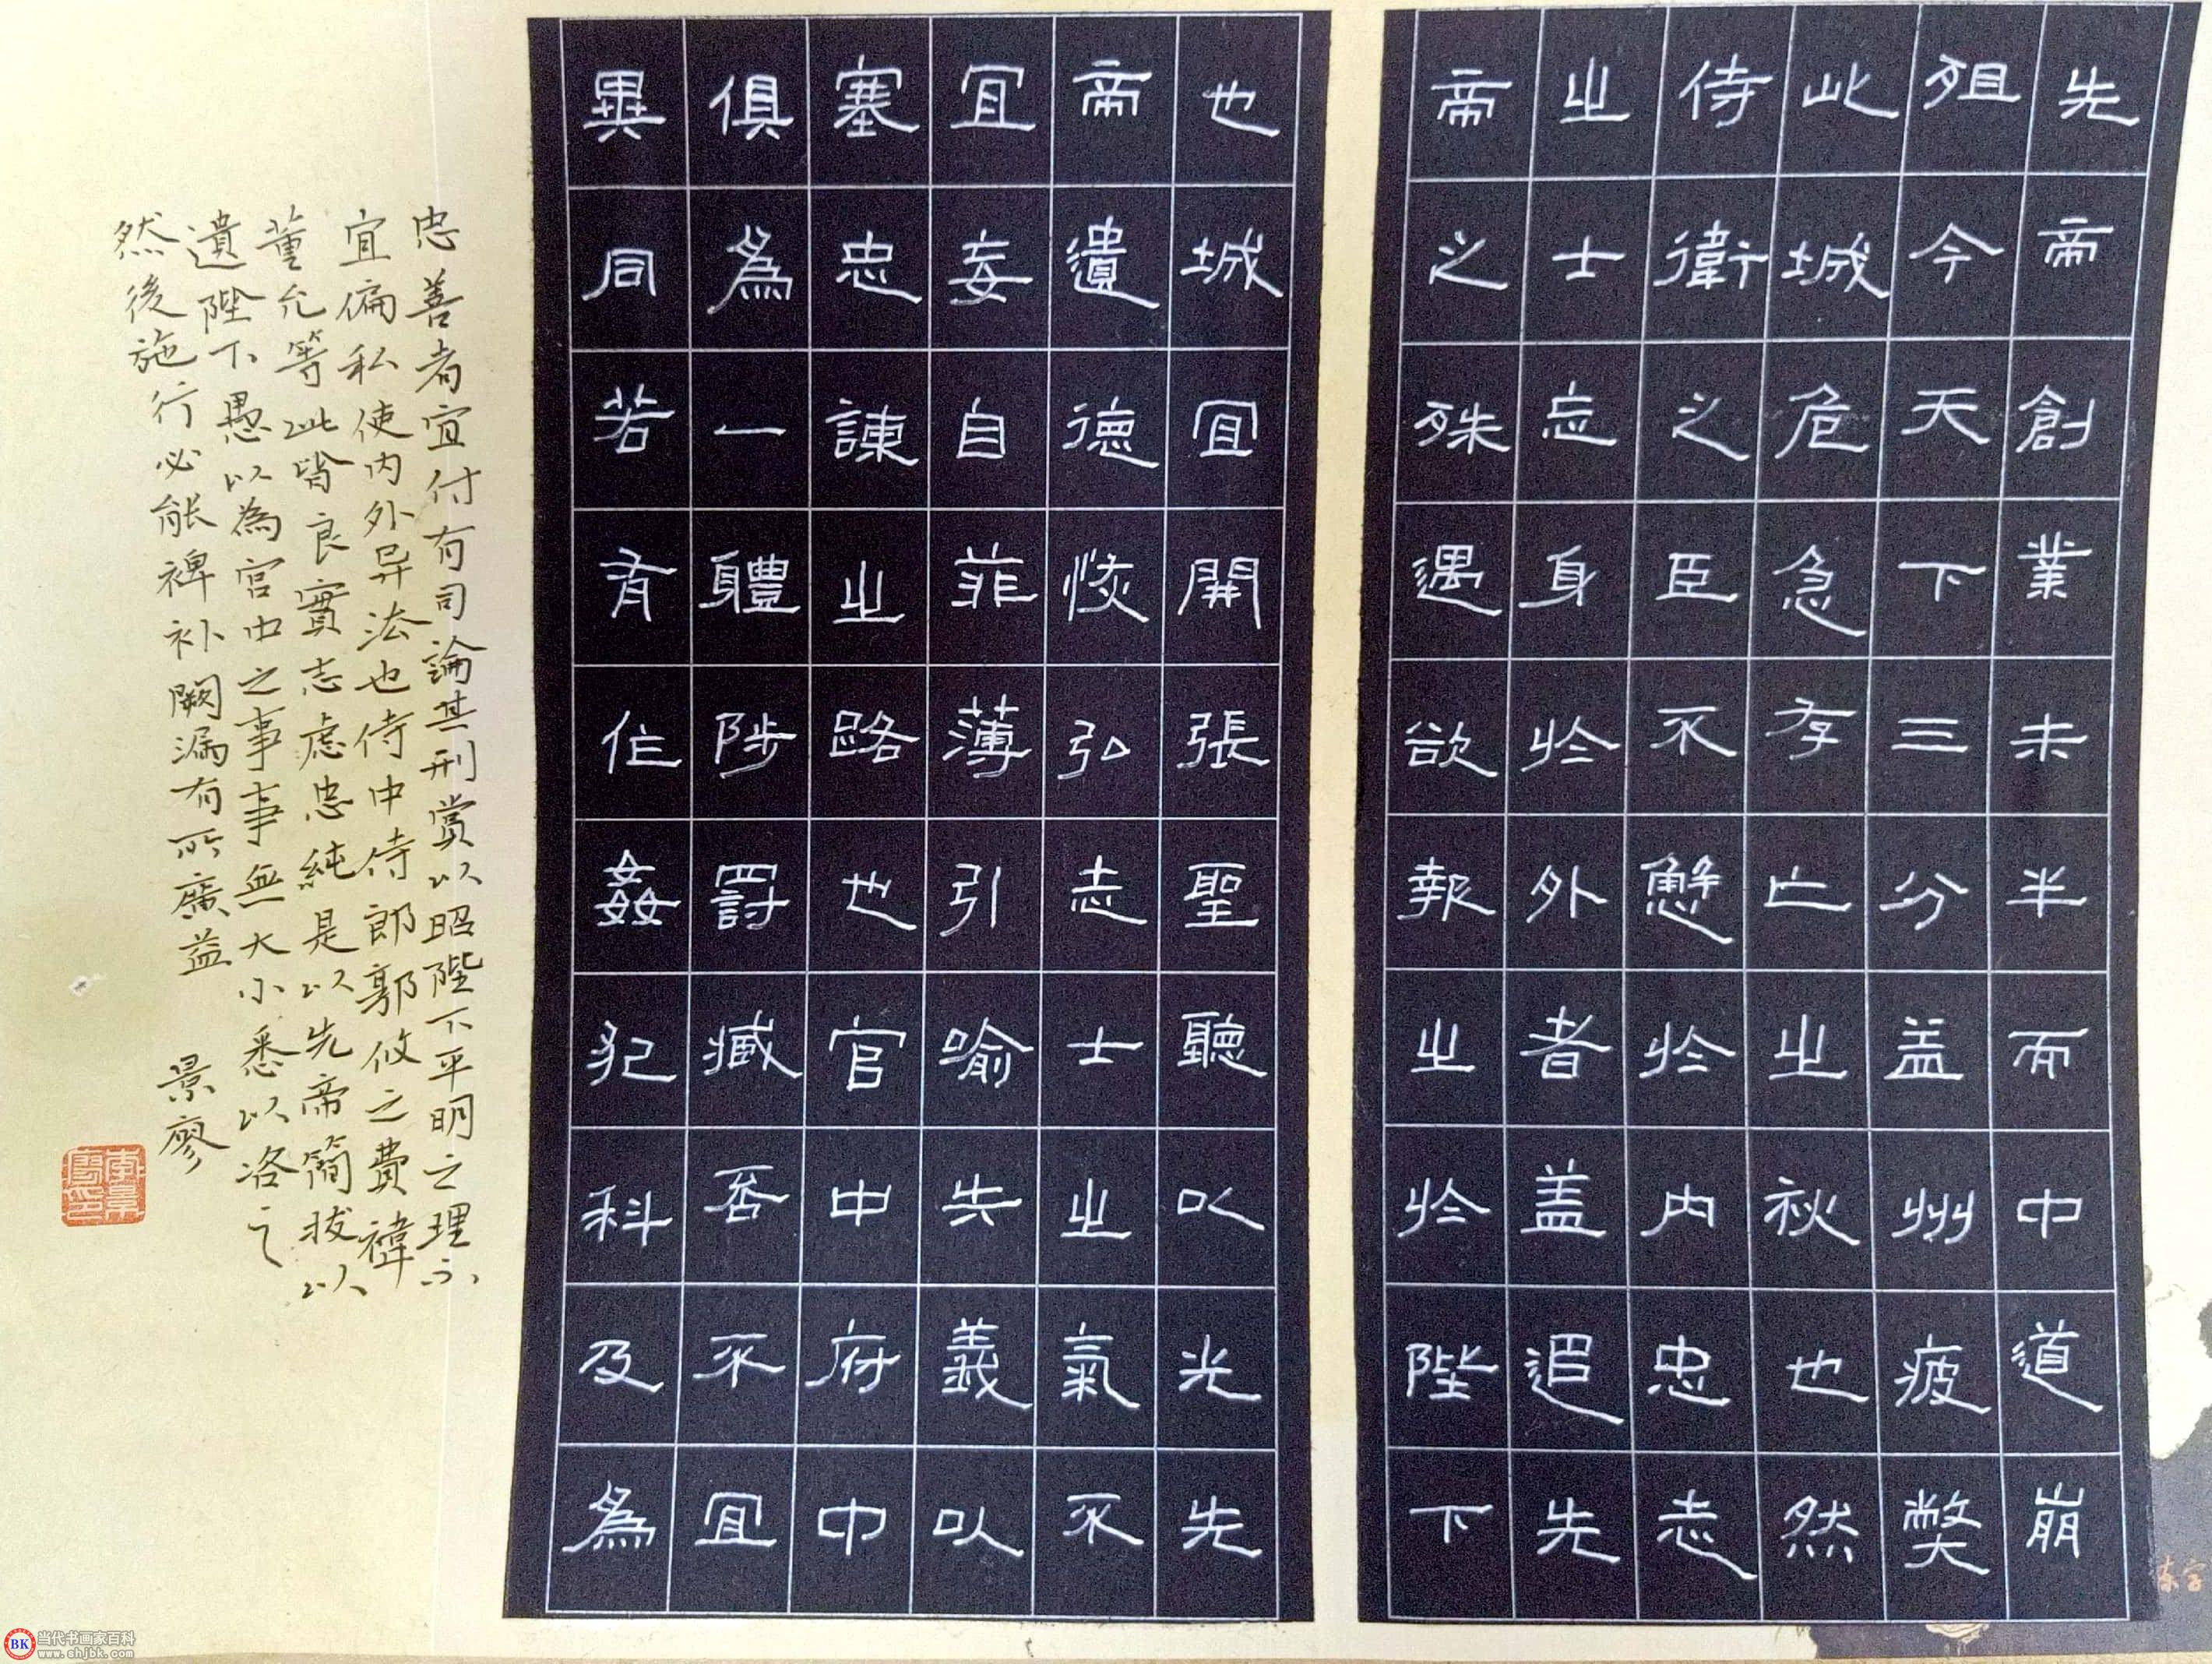 先帝創業未半而中道崩
殂今天下三分益州疲獘
此城危急存亡之秋也然
侍衛之臣不懈於内忠志
之士忘身於外者盖追先
帝之殊遇欲報之於陛下
也城宜開張聖聽以光先
帝遺德恢弘志士之氣不
宜妄自菲薄引喻失義以
塞忠諫之路也官中府中
俱為一體陟罰臧否不宜
異同若有作姦犯科及為
忠善者宜付有司論其刑賞以昭陛下平明之理不
宜偏私使内外异法也侍中侍郎郭攸之費禕
董允等此皆良實志慮忠純是以先帝簡拔以
遺陛下愚以為宮中之事事無大小悉以咨之
然後施行必能裨補闕漏有所廣益 景廖
BK 当代书画家百科
www.shjbk.com